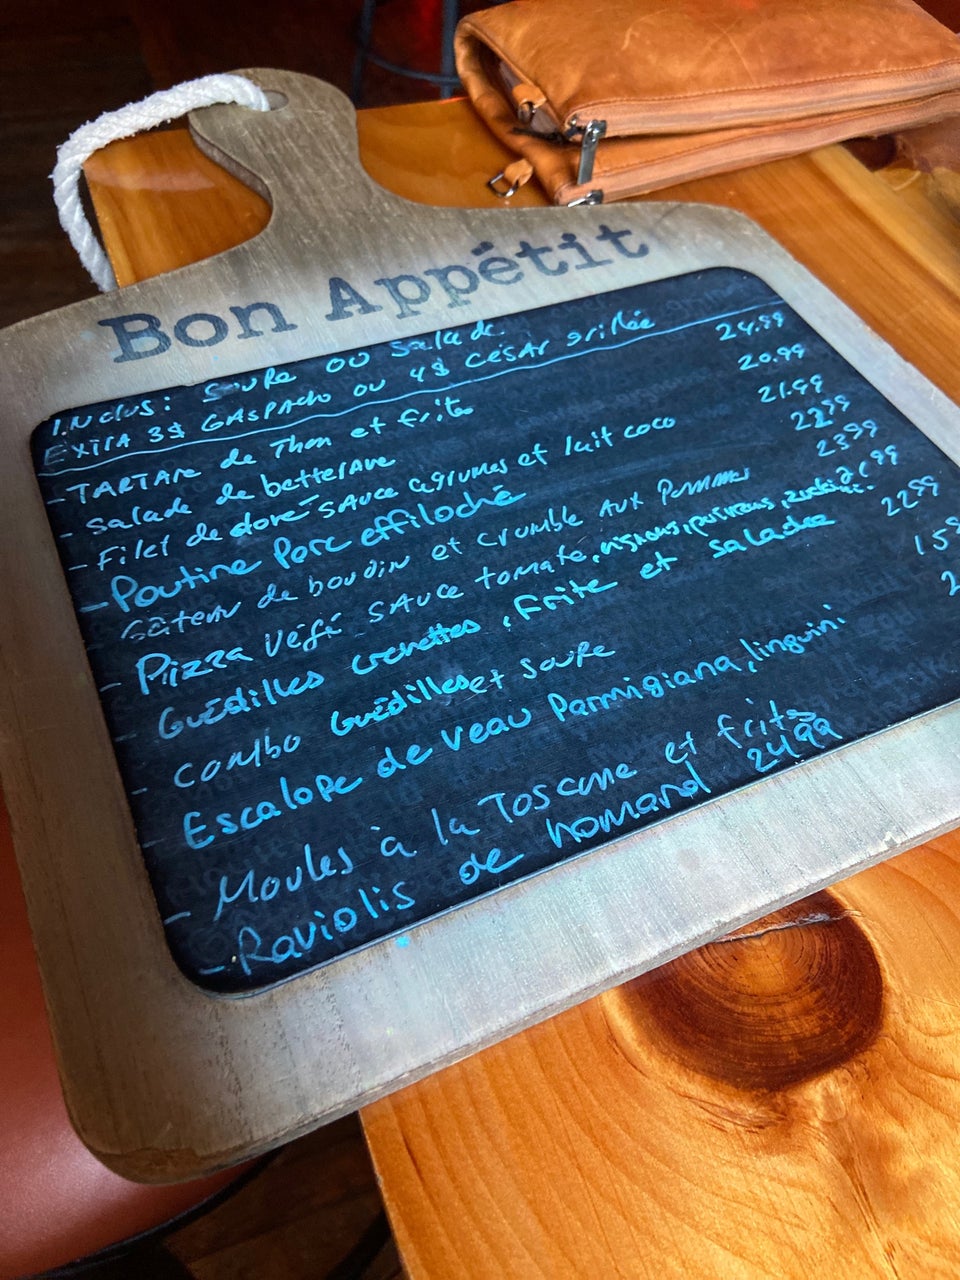 Bon Appétit
INCLUS: SOUPE OU SALADE.
EXTRA 3$ GASPACHO OU 4$ CÉSAR grillée
- TARTARE de Thon et frites 24.99
- Salade de betterave 20.99
- Filet de doré sauce agrumes et lait coco 21.99
- Poutine Porc effiloché 22.99
Gâteau de boudin et crumble aux pommes 23.99
- Pizza végé sauce tomate, oignons, poivrons, zucchini.
- Guédilles crevettes, frite et salade 22.99
- combo Guédilles et soupe
- Escalope de veau Parmigiana, linguini
- Moules à la Toscane et frites
- Raviolis de homard 24.99